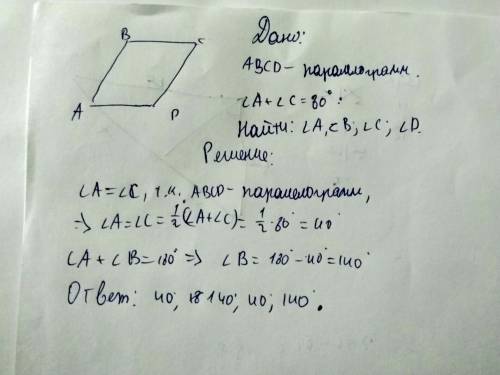 B C
A D
Дано:
ABCD - параллограмм.
∠A+∠C=80°.
Найти: ∠A, ∠B; ∠C; ∠D.
Решение:
∠A=∠C, т.к. ABCD- парамелограмм,
=> ∠A=∠C=1/2(∠A+∠C)=1/2·80°=40°
∠A+∠B=180° => ∠B= 180°-40°=140°
Ответ: 40°; 140°; 40; 140°.